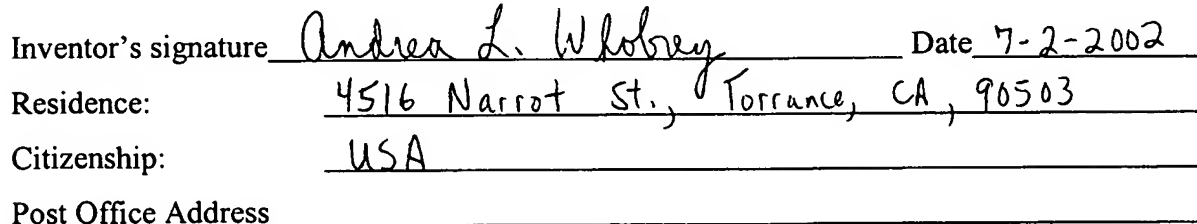 Inventor's signature Andrea L. Whobrey Date 7-2-2002
Residence: 4516 Narrot St., Torrance, CA, 90503
Citizenship: USA
Post Office Address